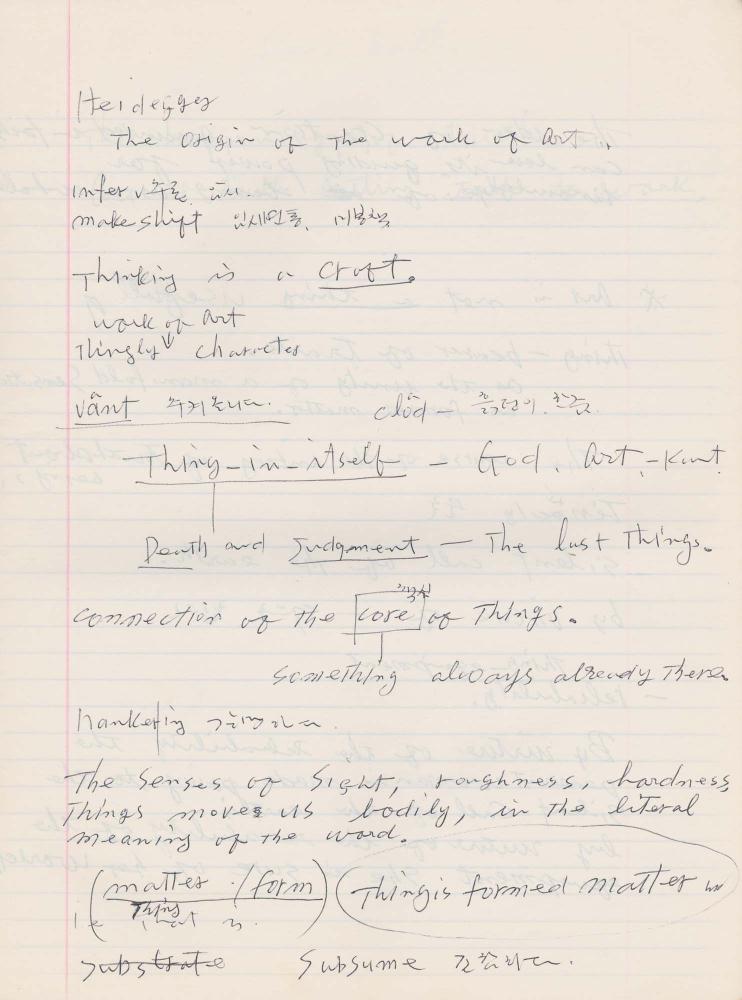 Heidegger
The origin of the work of Art..
infer v추론, 암시.
makeshift 임시변통, 미봉책
Thinking is a craft.
work of Art
Thingly character
vânt 주기 놉니다.
clôd – 흙덩이.
Thing-in-itself – God. Art – Kant
Death and Judgment – The last Things.
connection of the core of Things.
something always already there.
hankering 갈망하다.
The senses of sight, roughness, hardness,
Things moves us bodily, in the literal
meaning of the word.
(matter / form) (Thing is formed matter
i.e Thing that is
substrate subsume 포함하다.